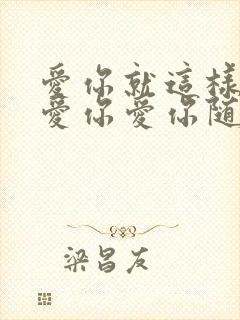 愛你就這樣
愛你愛你随
梁昌友